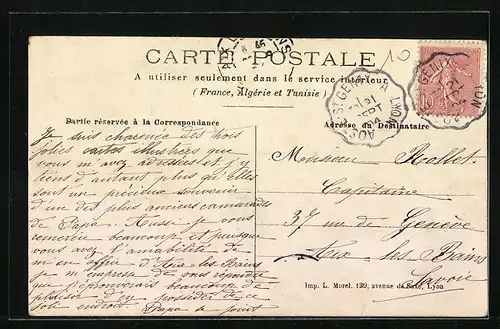 CARTE POSTALE
A utiliser seulement dans le service intérieur
(France, Algérie et Tunisie)
Partie réservée à la Correspondance
Adresse du Destinataire
Je suis charmée des trois
jolies cartes illustrées que
vous m'avez adressées et j'y
tiens d'autant plus qu'elles
sont un précieux souvenir
d'un des plus anciens camarades
de Papa. Aussi je vous
remercie beaucoup et puisque
vous avez l'amabilité de
m'en offrir d'Aix les Bains
je m'empresse de vous répondre
que j'éprouverais beaucoup de
plaisir d'en posséder de ce
joli endroit. Papa a
Monsieur Rollet
Capitaine
37 rue de Genève
Aix les Bains
Savoie
Imp. L. Morel, 139, avenue de Saxe, Lyon
10
ST GENIX A
SEPT
04
10